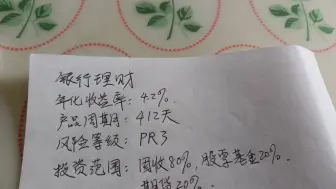 银行理财
年化收益率：4.2%.
产品周期：412天
风险等级：PR3
投资范围：固收80%，股票基金20%.
期货20%.